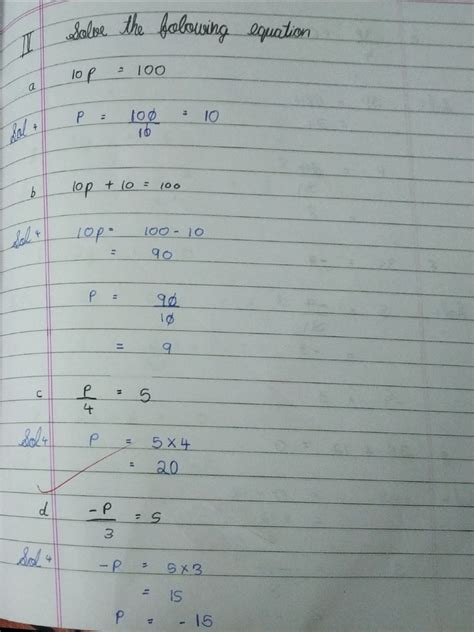 II Solve the following equation
a 10p = 100
Sol → P = 100/10 = 10
b 10p + 10 = 100
Sol → 10p = 100 - 10
= 90
P = 90/10
= 9
c P/4 = 5
Sol → P = 5 × 4
= 20
d -P/3 = 5
Sol → -P = 5 × 3
= 15
P = - 15